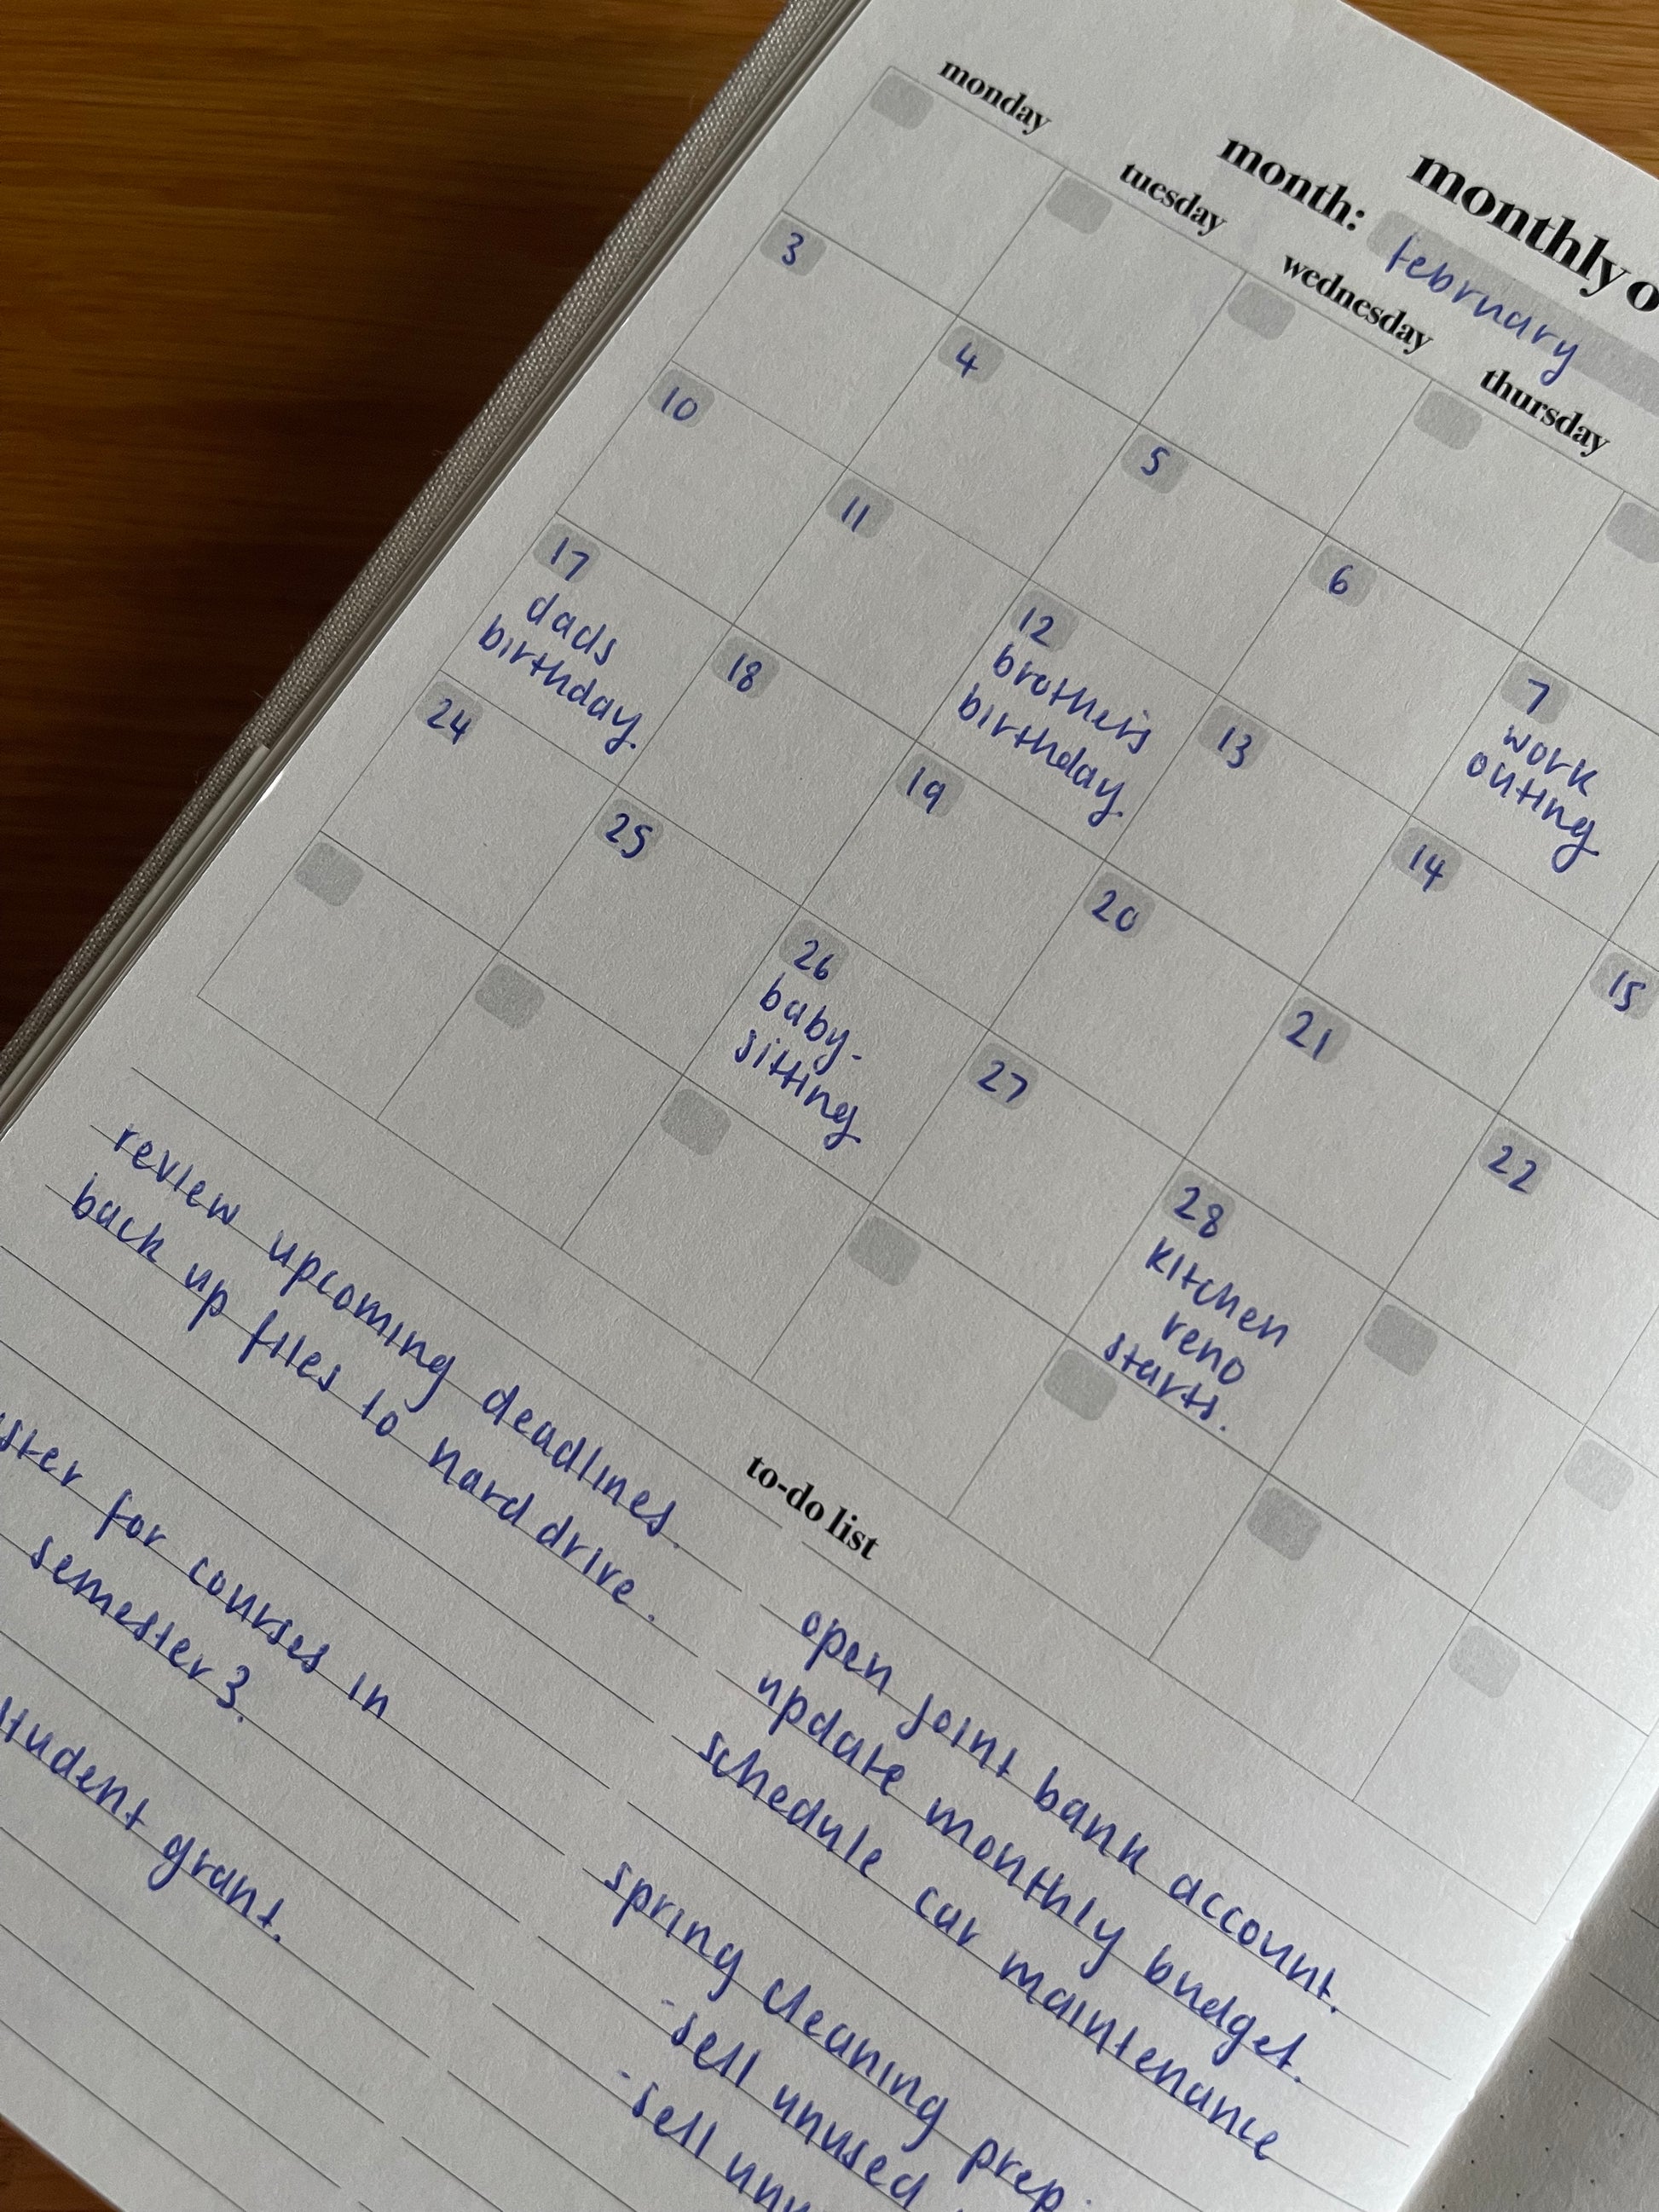 monthly
month: february
monday
tuesday
wednesday
thursday
3
4
5
6
7
work
outing
10
11
12
brother's
birthday.
13
14
15
17
dads
birthday.
18
19
20
21
22
24
25
26
baby-
sitting
27
28
kitchen
reno
starts.
review upcoming deadlines.
back up files to hard drive.
for courses in
semester 3.
student grant.
to-do list
open joint bank account.
update monthly budget.
schedule car maintenance
spring cleaning prep.
- sell unused
- sell